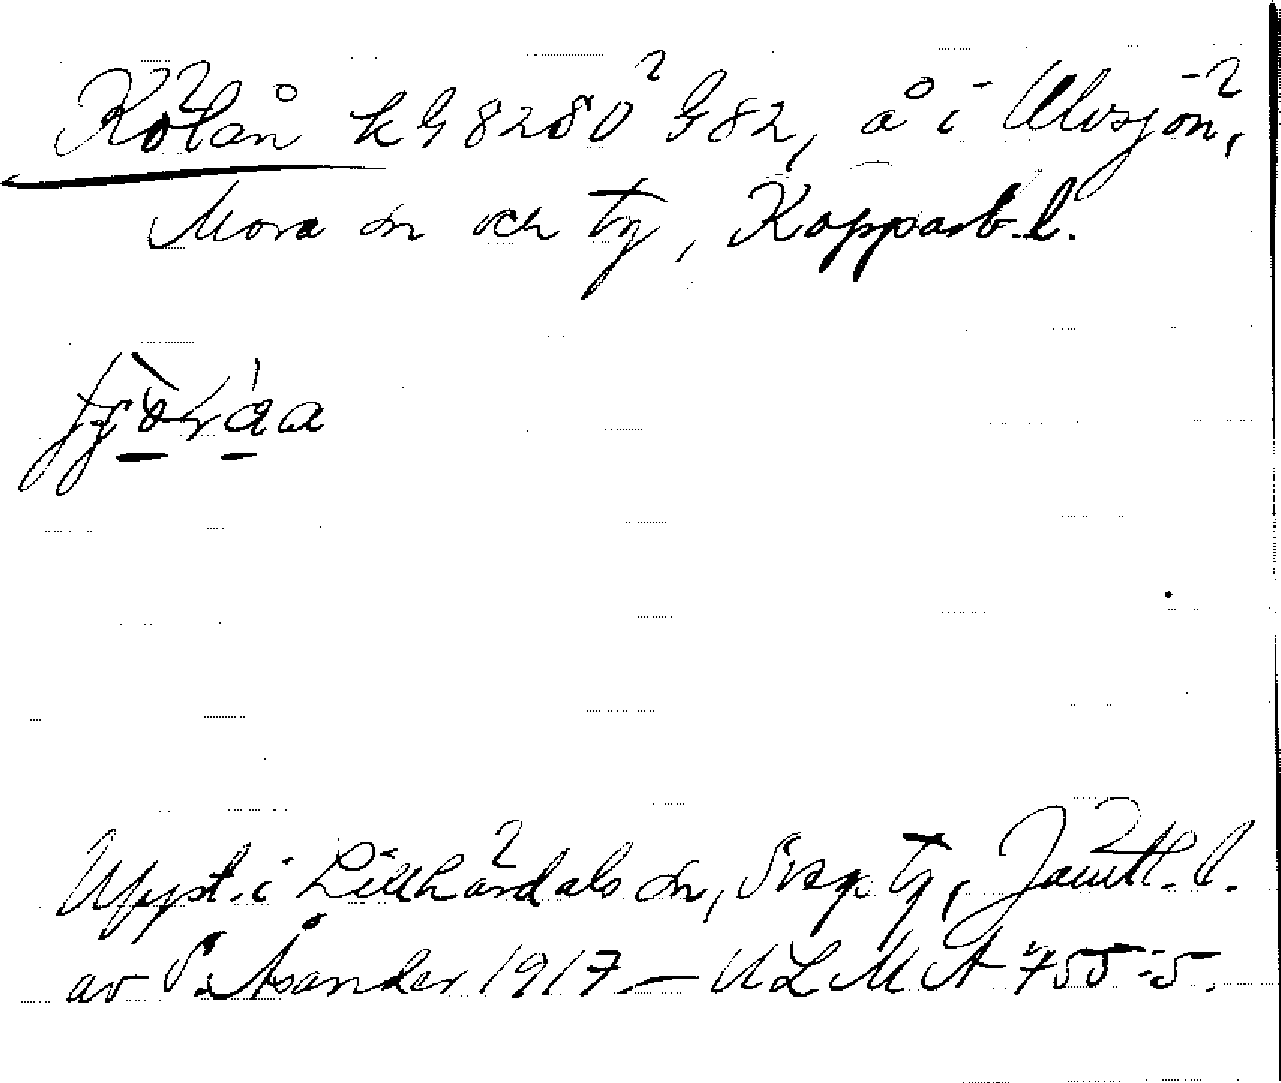 Kölån kG 8280 G 82, å i Älvsjön,
Mora sn och tg, Kopparb. l.
Uppt. i Lillhärdals sn, Sveg tg, Jämtl. l.
av P. Åsander 1917 — ULMA 755:5.